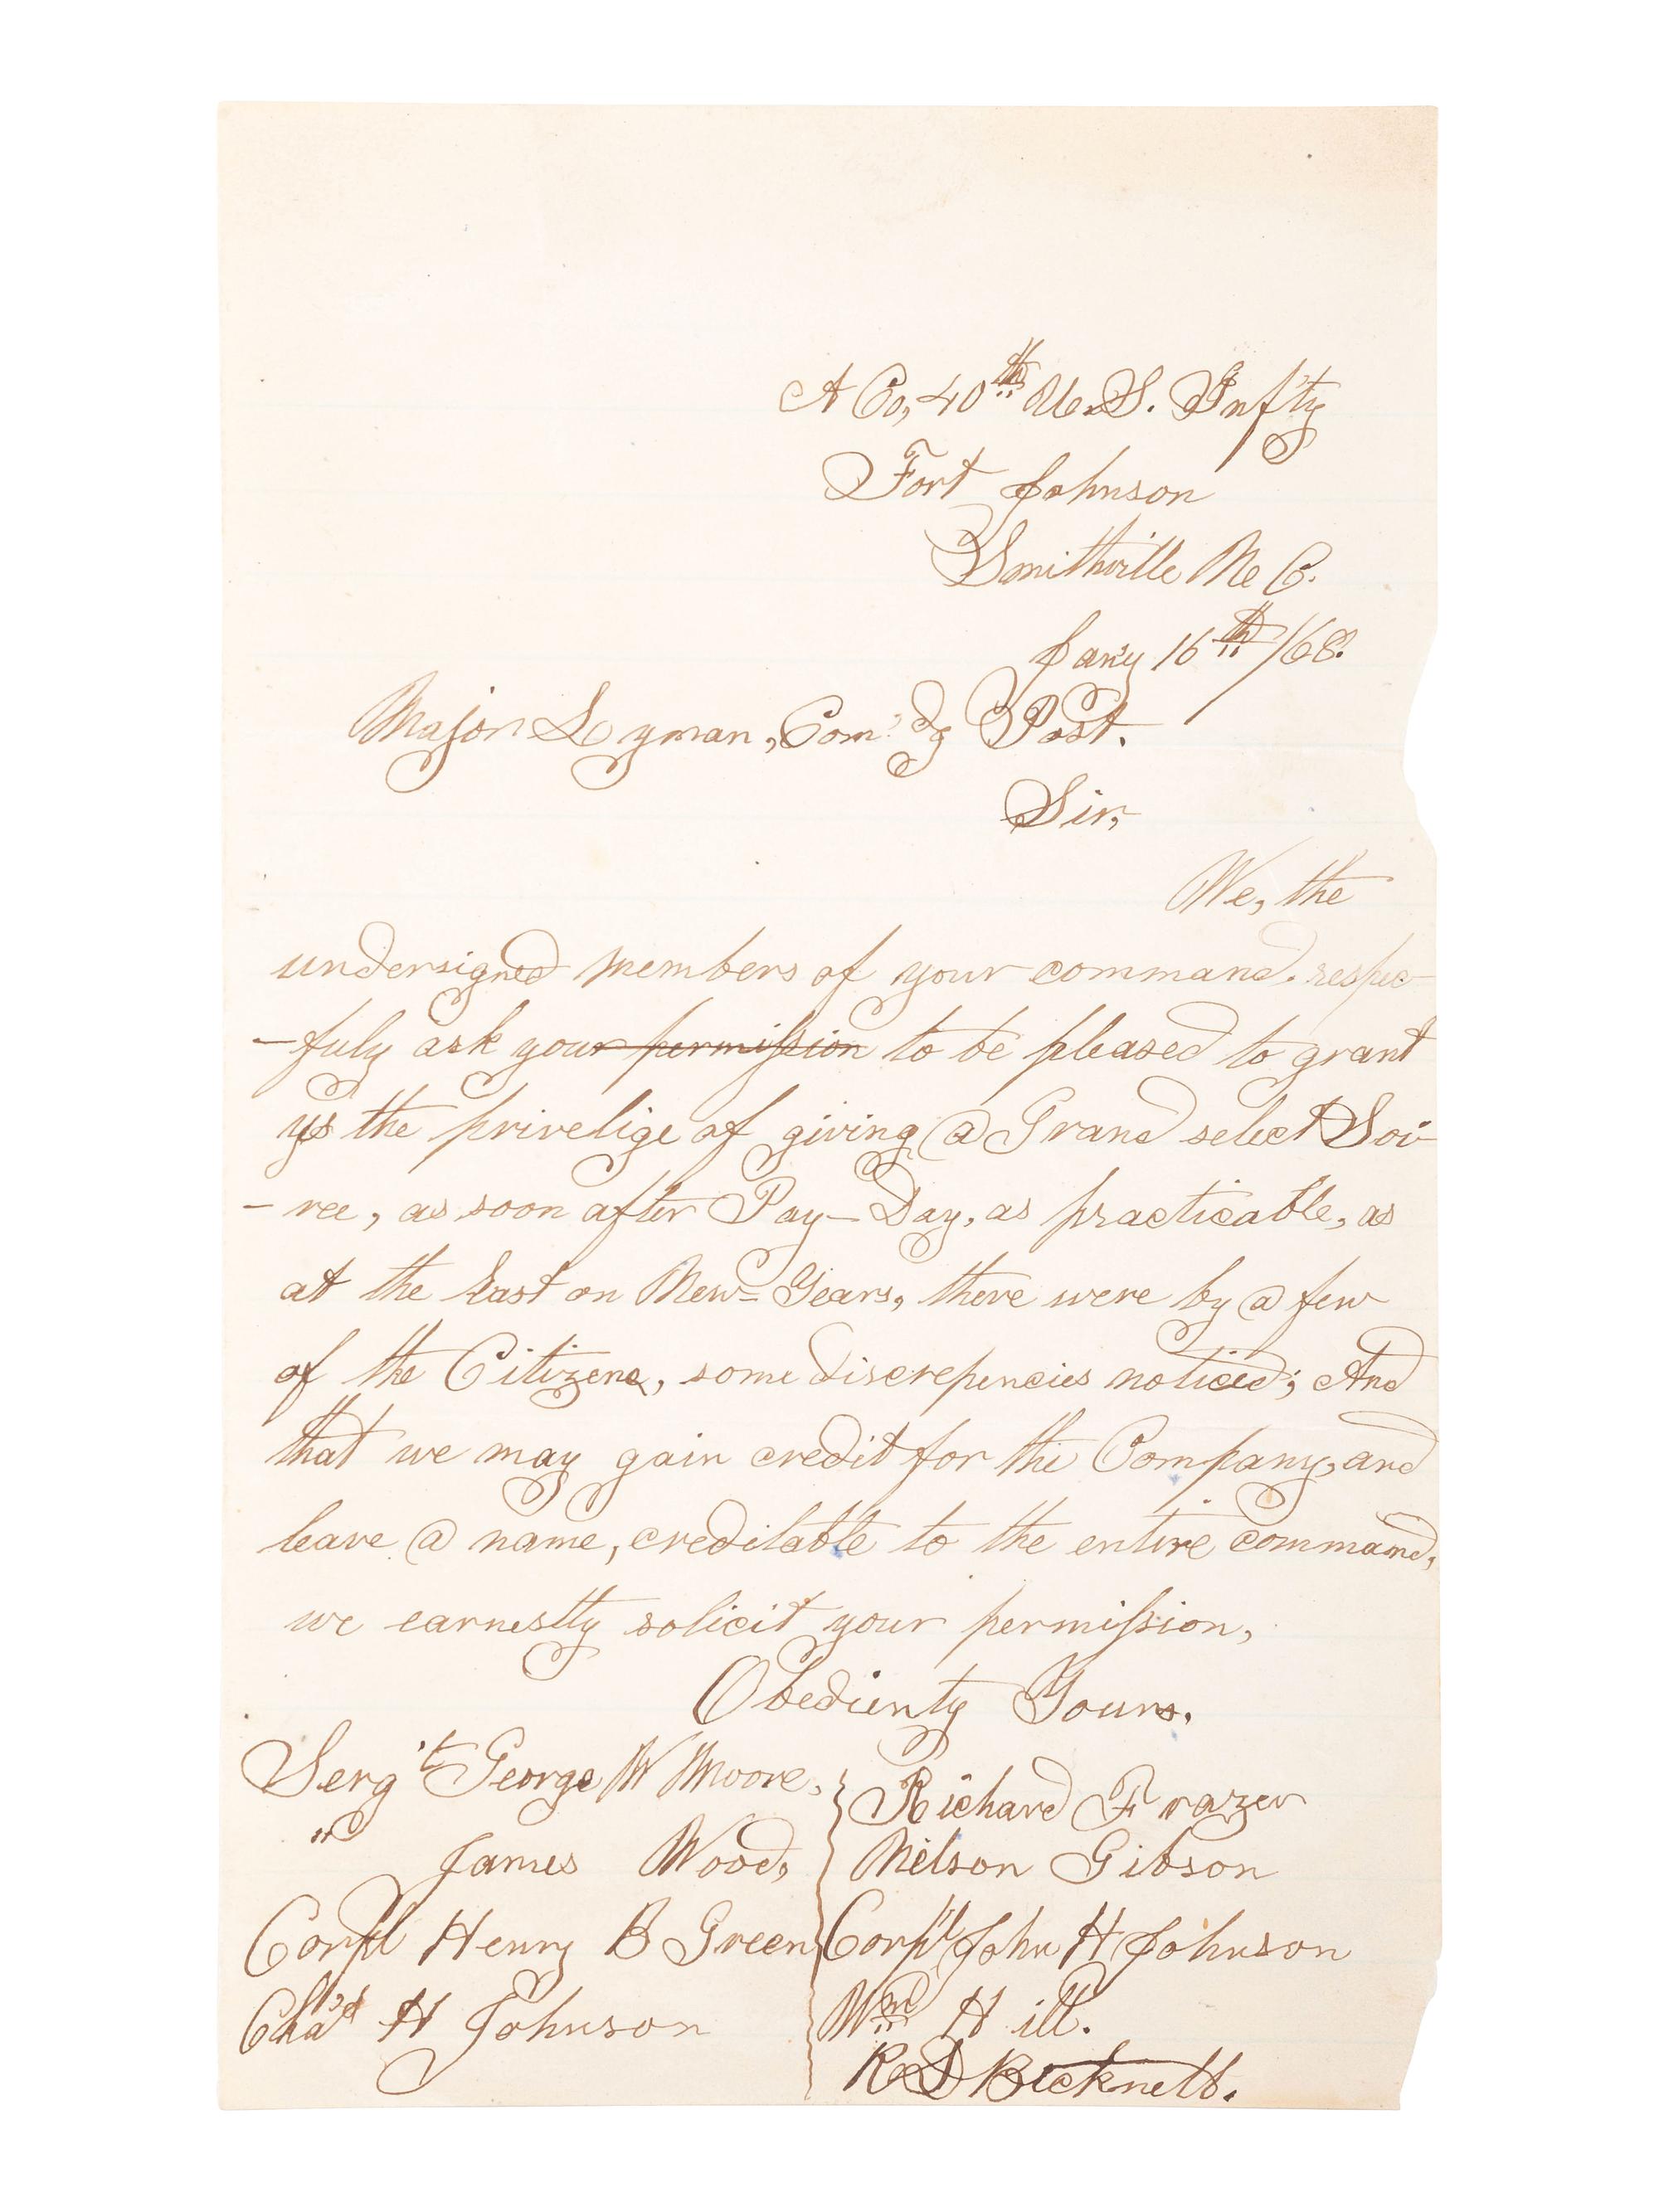 A Co, 40th U.S. Inf'ty
Fort Johnson
Smithville N C.
Jan'y 16th /68.
Major Lyman, Com'dg Post.
Sir,
We, the
undersigned members of your command. respec-
-fuly ask your permission to be pleased to grant
us the privelige of giving a Grand select Soi-
-ree, as soon after Pay-Day, as practicable, as
at the last on New=Years, there were by a few
of the Citizens, some discrepencies noticed; And
that we may gain credit for the Company, and
leave a name, creditable to the entire command,
we earnestly solicit your permission,
Obedienty Yours.
Serg't George W Moore,
" James Wood,
Corpl Henry B Green
Cha's H Johnson
Richard Frazer
Nelson Gibson
Corp'l John H Johnson
Wm Hill.
R S Bicknell.